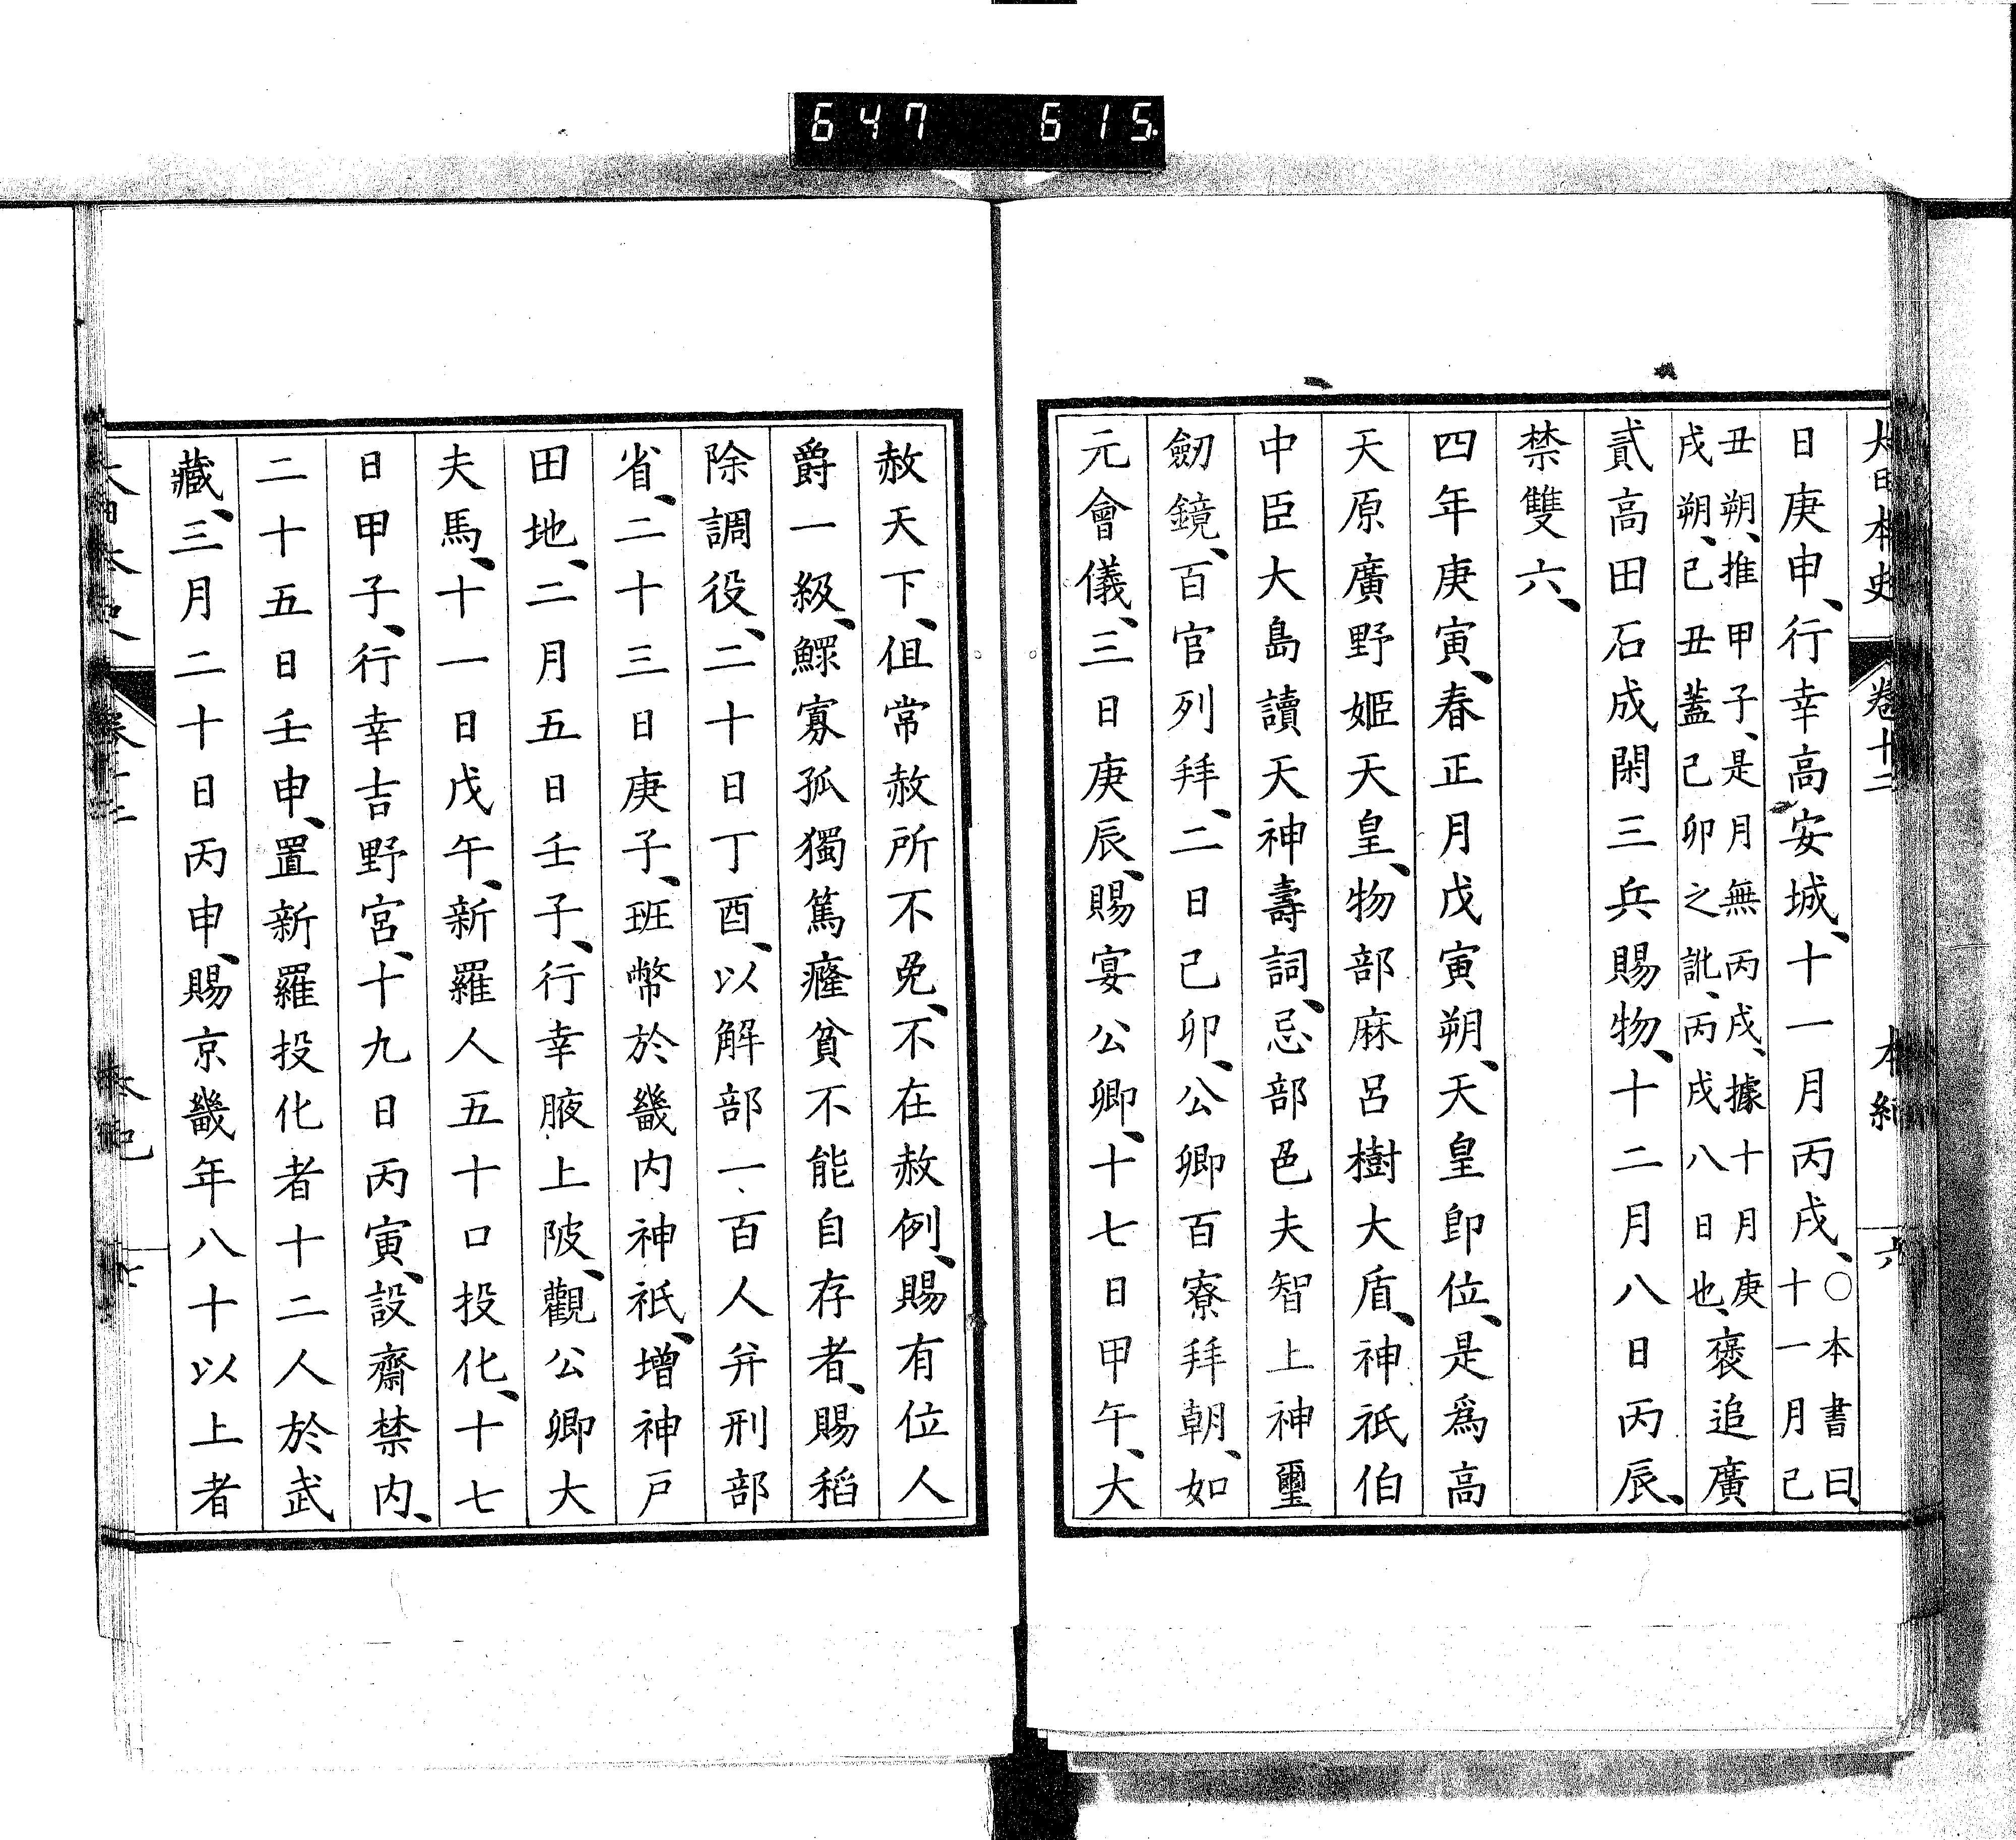 647 615.
大日本史 卷十二 本紀 六
日庚申、行幸高安城、十一月丙戌、○本書曰、十一月己
丑朔、推甲子、是月無丙戌、據十月庚戌朔、己丑蓋己卯之訛、丙戌八日也、褒追廣
貳高田石成閑三兵賜物、十二月八日丙辰、
禁雙六、
四年庚寅、春正月戊寅朔、天皇卽位、是爲高
天原廣野姬天皇、物部麻呂樹大盾、神祇伯
中臣大島讀天神壽詞、忌部色夫智上神璽
劒鏡、百官列拜、二日己卯、公卿百寮拜朝、如
元會儀、三日庚辰、賜宴公卿、十七日甲午、大
赦天下、但常赦所不免、不在赦例、賜有位人
爵一級、鰥寡孤獨篤癃貧不能自存者、賜稻
除調役、二十日丁酉、以解部一百人幷刑部
省、二十三日庚子、班幣於畿内神祇、增神戶
田地、二月五日壬子、行幸腋上陂、觀公卿大
夫馬、十一日戊午、新羅人五十口投化、十七
日甲子、行幸吉野宮、十九日丙寅、設齋禁内、
二十五日壬申、置新羅投化者十二人於武
藏、三月二十日丙申、賜京畿年八十以上者
大日本史 本紀